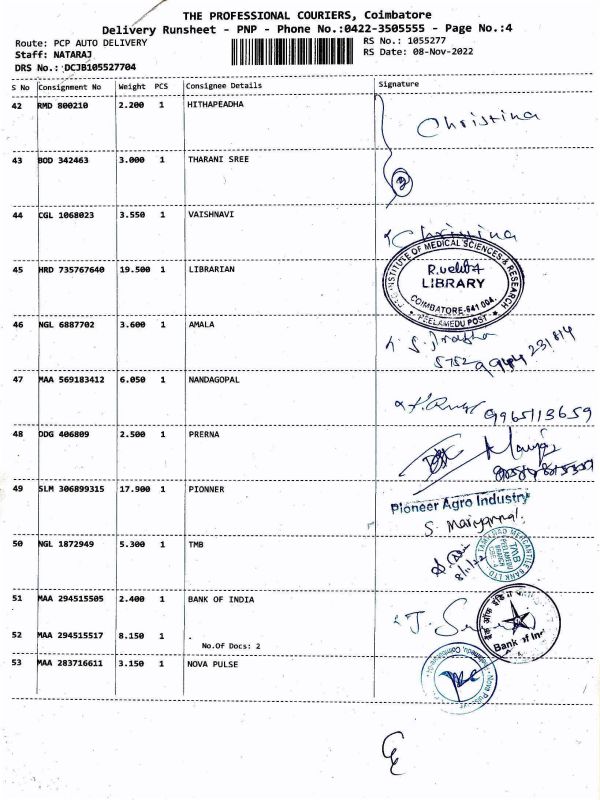 THE PROFESSIONAL COURIERS, Coimbatore
Delivery Runsheet - PNP - Phone No.:0422-3505555 - Page No.:4
Route: PCP AUTO DELIVERY
RS No.: 1055277
Staff: NATARAJ
RS Date: 08-Nov-2022
DRS No.: DCJB105527704
S No Consignment No Weight PCS Consignee Details Signature
42 RMD 800210 2.200 1 HITHAPEADHA
Christina
43 BOD 342463 3.000 1 THARANI SREE
44 CGL 1068023 3.550 1 VAISHNAVI
Christina
INSTITUTE OF MEDICAL SCIENCES & RESEARCH
45 HRD 735767640 19.500 1 LIBRARIAN
LIBRARY
COIMBATORE-641 004.
PEELAMEDU POST
46 NGL 6887702 3.600 1 AMALA
47 MAA 569183412 6.050 1 NANDAGOPAL
9965113659
48 DDG 406809 2.500 1 PRERNA
49 SLM 306899315 17.900 1 PIONNER
Pioneer Agro Industry
S. Mariyammal.
50 NGL 1872949 5.300 1 TMB
TAMILNAD MERCANTILE BANK LTD.
TMB
PEELAMEDU
BRANCH
CBE-4
8/11/22
51 MAA 294515505 2.400 1 BANK OF INDIA
52 MAA 294515517 8.150 1 .
No.Of Docs: 2
Bank of Ind
53 MAA 283716611 3.150 1 NOVA PULSE